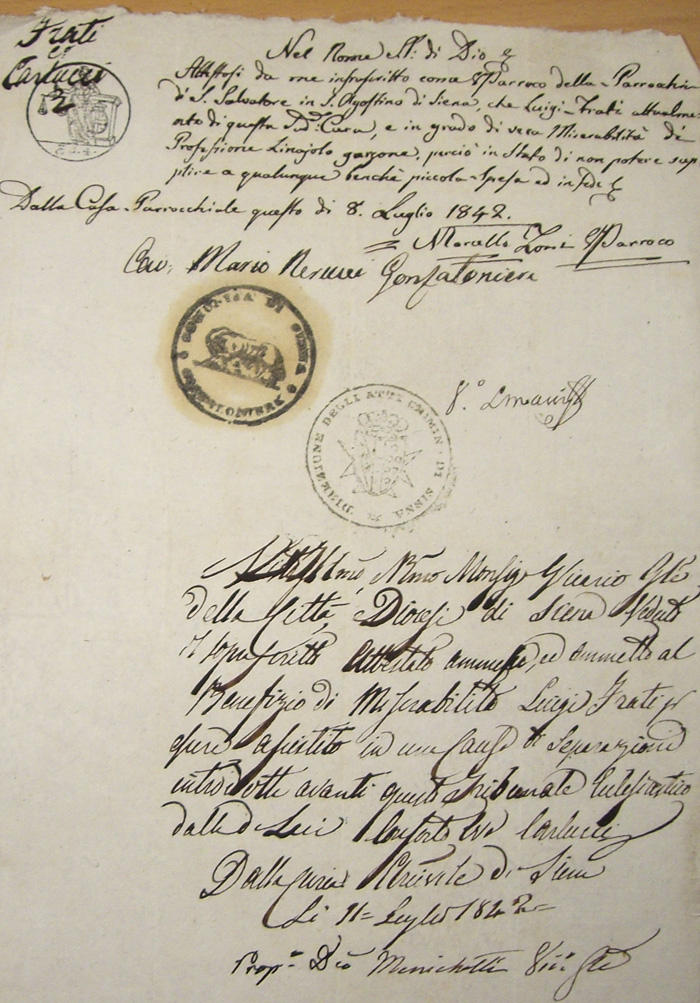 Frati
e
Carlucci
2
Nel Nome SS: di Dio
Attestasi da me infrascritto come Parroco della Parrocchia
di S. Salvatore in S. Agostino di Siena, che Luigi Frati attualme-
nte di questa Sud: Cura, e in grado di vera Miserabilità di
Professione Linajolo garzone, perciò in Stato di non potere sup-
plire a qualunque benchè piccola Spesa ed in fede
Dalla Casa Parrocchiale questo dì 8. Luglio 1842.
Marcello Parroco
Cav: Mario Nerucci Gonfaloniere
COMUNITÀ DI SIENA
GONFALONIERE
8.°
DIREZIONE DEGLI ATTI CRIMIN. DI SIENA
Illmo Rmo Monsigr Vicario Gle
della Città, e Diocesi di Siena Veduto
il soprascritto Attestato ammesse, ed ammette al
Benefizio di Miserabilità Luigi Frati pr
assistito in una Causa di Separazione
introdotta avanti questo Tribunale Ecclesiastico
dalla di Lui Consorte Carlucci
Dalla Curia di Siena
Li 11 = Luglio 1842 =
Menichetti Vic° Gle